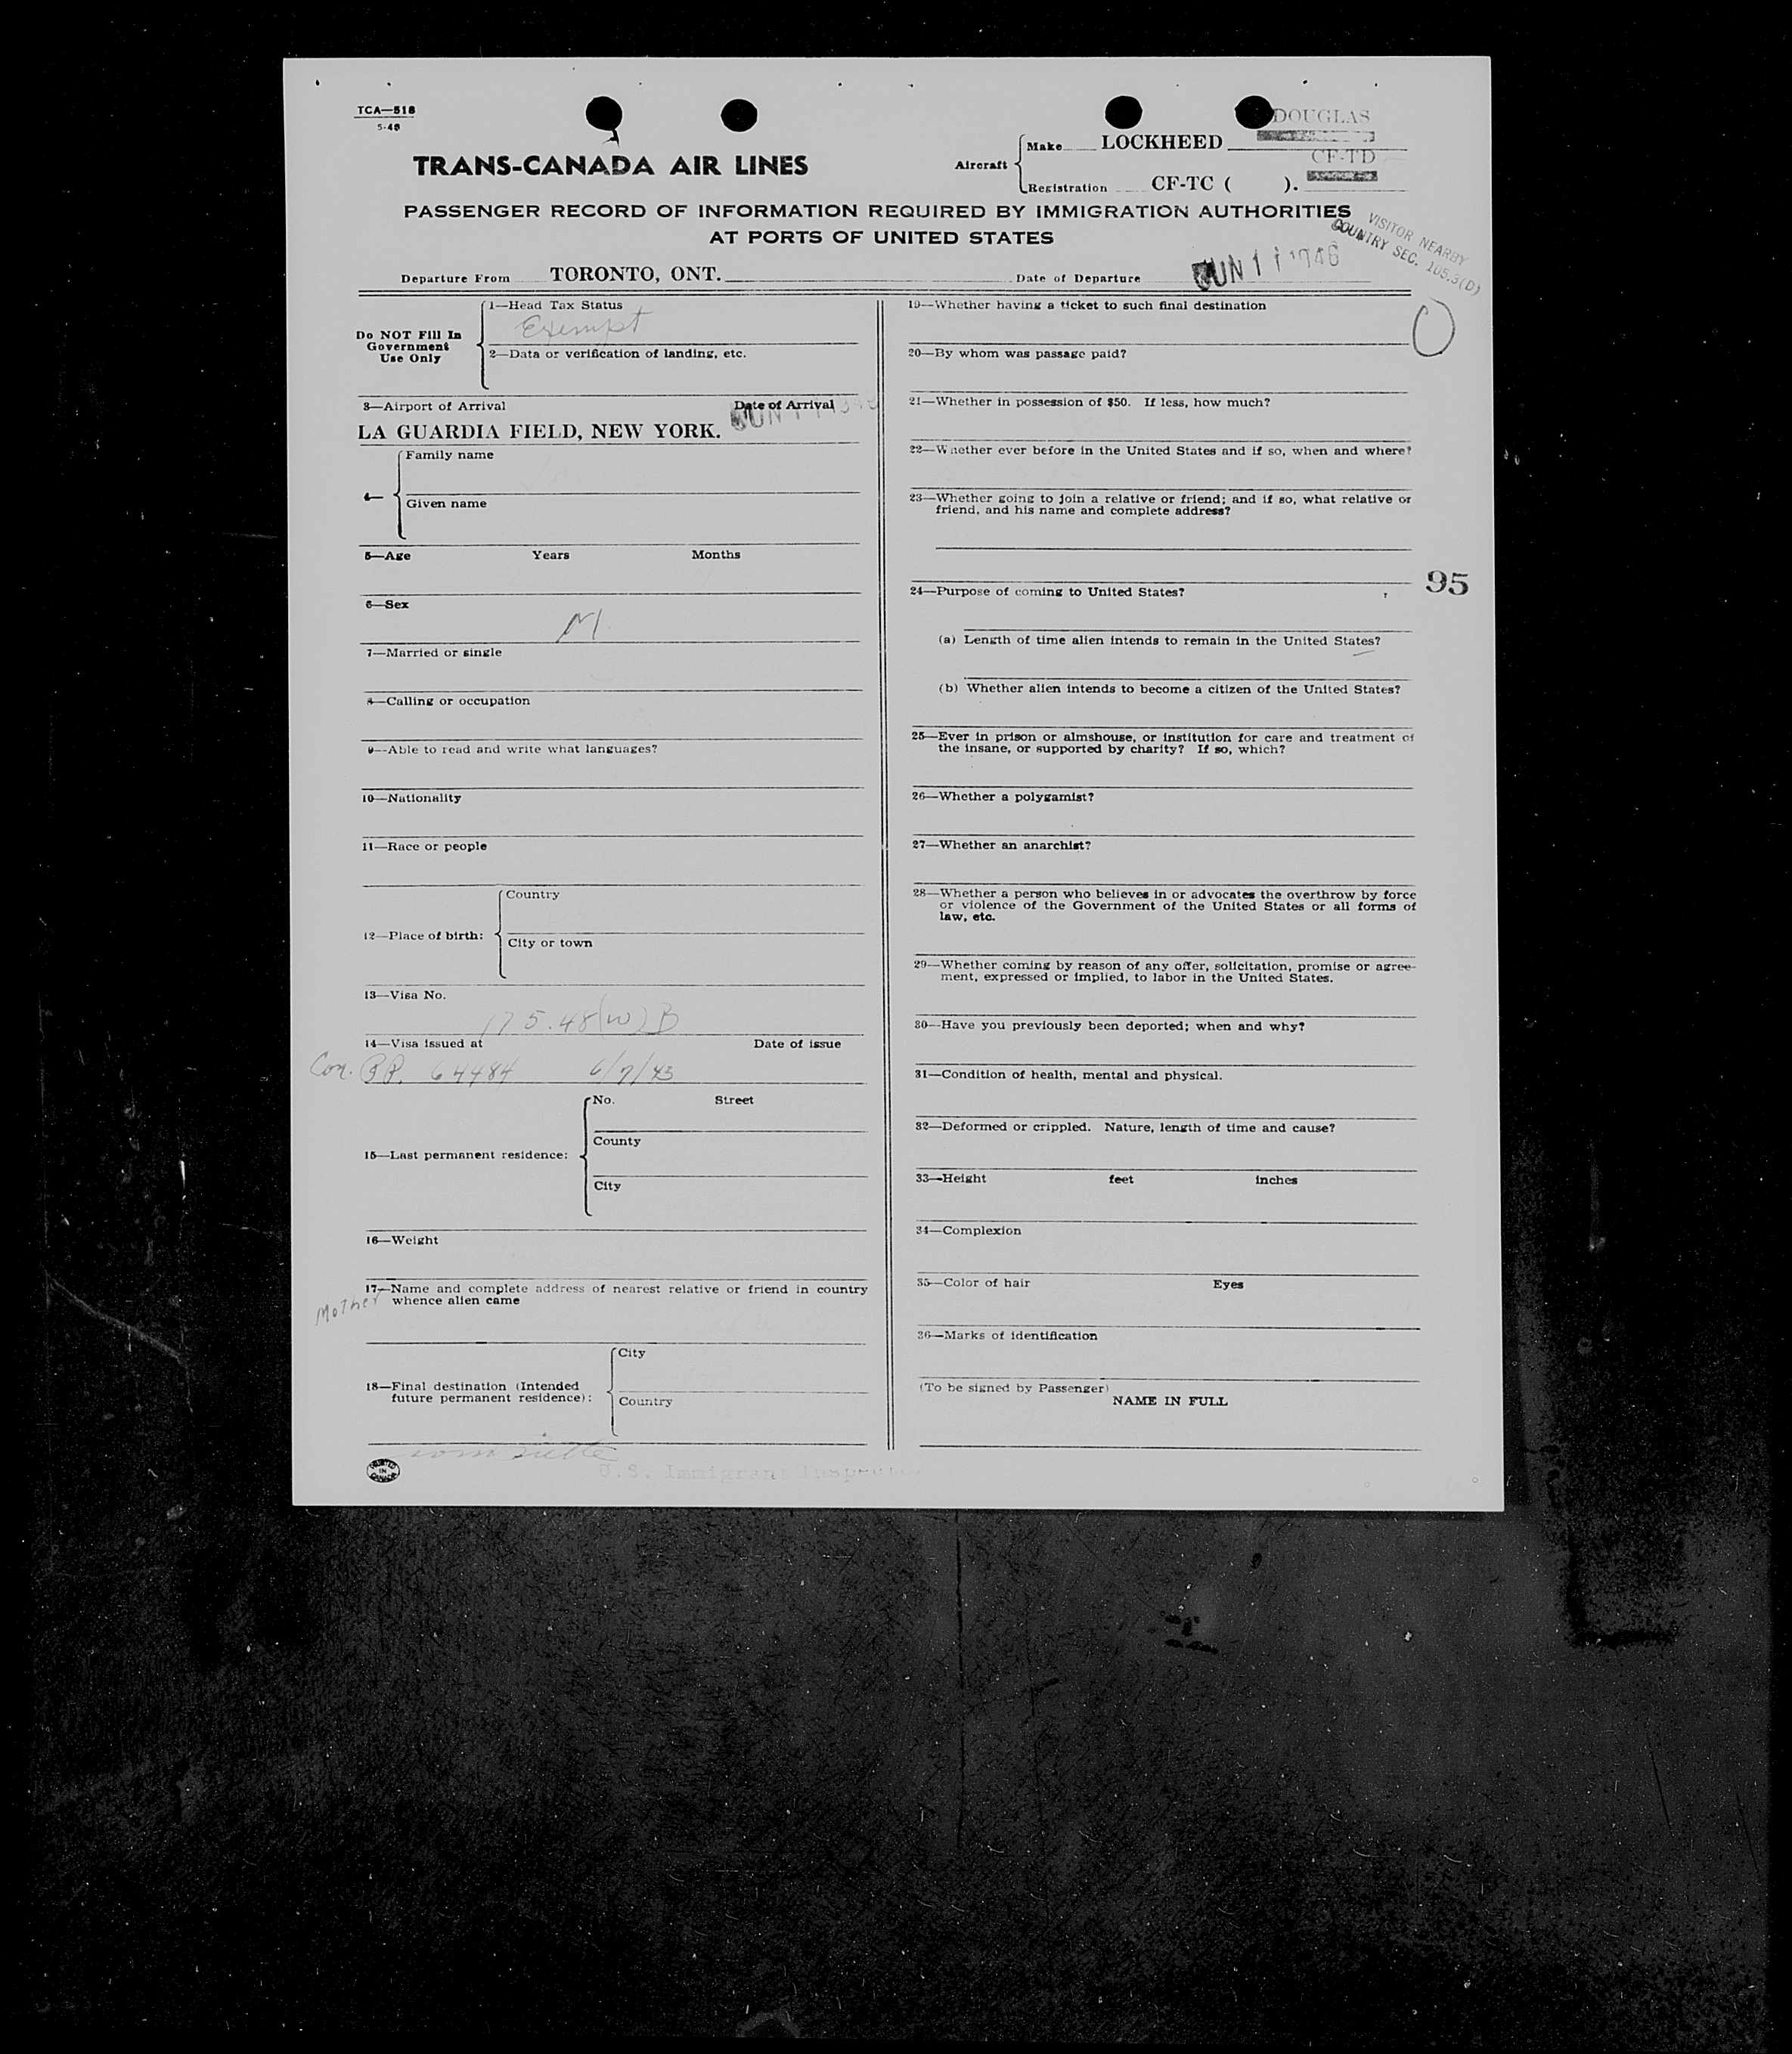 TCA—518
5-46
DOUGLAS
TRANS-CANADA AIR LINES
Aircraft
Make LOCKHEED
CF-TD
Registration CF-TC ( ).
PASSENGER RECORD OF INFORMATION REQUIRED BY IMMIGRATION AUTHORITIES
AT PORTS OF UNITED STATES
VISITOR NEARBY
COUNTRY SEC. 105.3(D)
Departure From TORONTO, ONT.
Date of Departure JUN 11 1946
Do NOT Fill In
Government
Use Only
1—Head Tax Status
Exempt
2—Data or verification of landing, etc.
3—Airport of Arrival Date of Arrival
LA GUARDIA FIELD, NEW YORK. JUN 11 1946
4—
Family name
Given name
5—Age Years Months
6—Sex
M
7—Married or single
8—Calling or occupation
9—Able to read and write what languages?
10—Nationality
11—Race or people
12—Place of birth:
Country
City or town
13—Visa No.
175.48(W)B
14—Visa issued at Date of issue
Con. PP. 64484 6/7/45
15—Last permanent residence:
No. Street
County
City
16—Weight
17—Name and complete address of nearest relative or friend in country
whence alien came
Mother
18—Final destination (Intended
future permanent residence):
City
Country
U.S. Immigrant Inspector
PRINTED
IN
CANADA
19—Whether having a ticket to such final destination
20—By whom was passage paid?
21—Whether in possession of $50. If less, how much?
22—Whether ever before in the United States and if so, when and where?
23—Whether going to join a relative or friend; and if so, what relative or
friend, and his name and complete address?
95
24—Purpose of coming to United States?
(a) Length of time alien intends to remain in the United States?
(b) Whether alien intends to become a citizen of the United States?
25—Ever in prison or almshouse, or institution for care and treatment of
the insane, or supported by charity? If so, which?
26—Whether a polygamist?
27—Whether an anarchist?
28—Whether a person who believes in or advocates the overthrow by force
or violence of the Government of the United States or all forms of
law, etc.
29—Whether coming by reason of any offer, solicitation, promise or agree-
ment, expressed or implied, to labor in the United States.
30—Have you previously been deported; when and why?
31—Condition of health, mental and physical.
32—Deformed or crippled. Nature, length of time and cause?
33—Height feet inches
34—Complexion
35—Color of hair Eyes
36—Marks of identification
(To be signed by Passenger)
NAME IN FULL